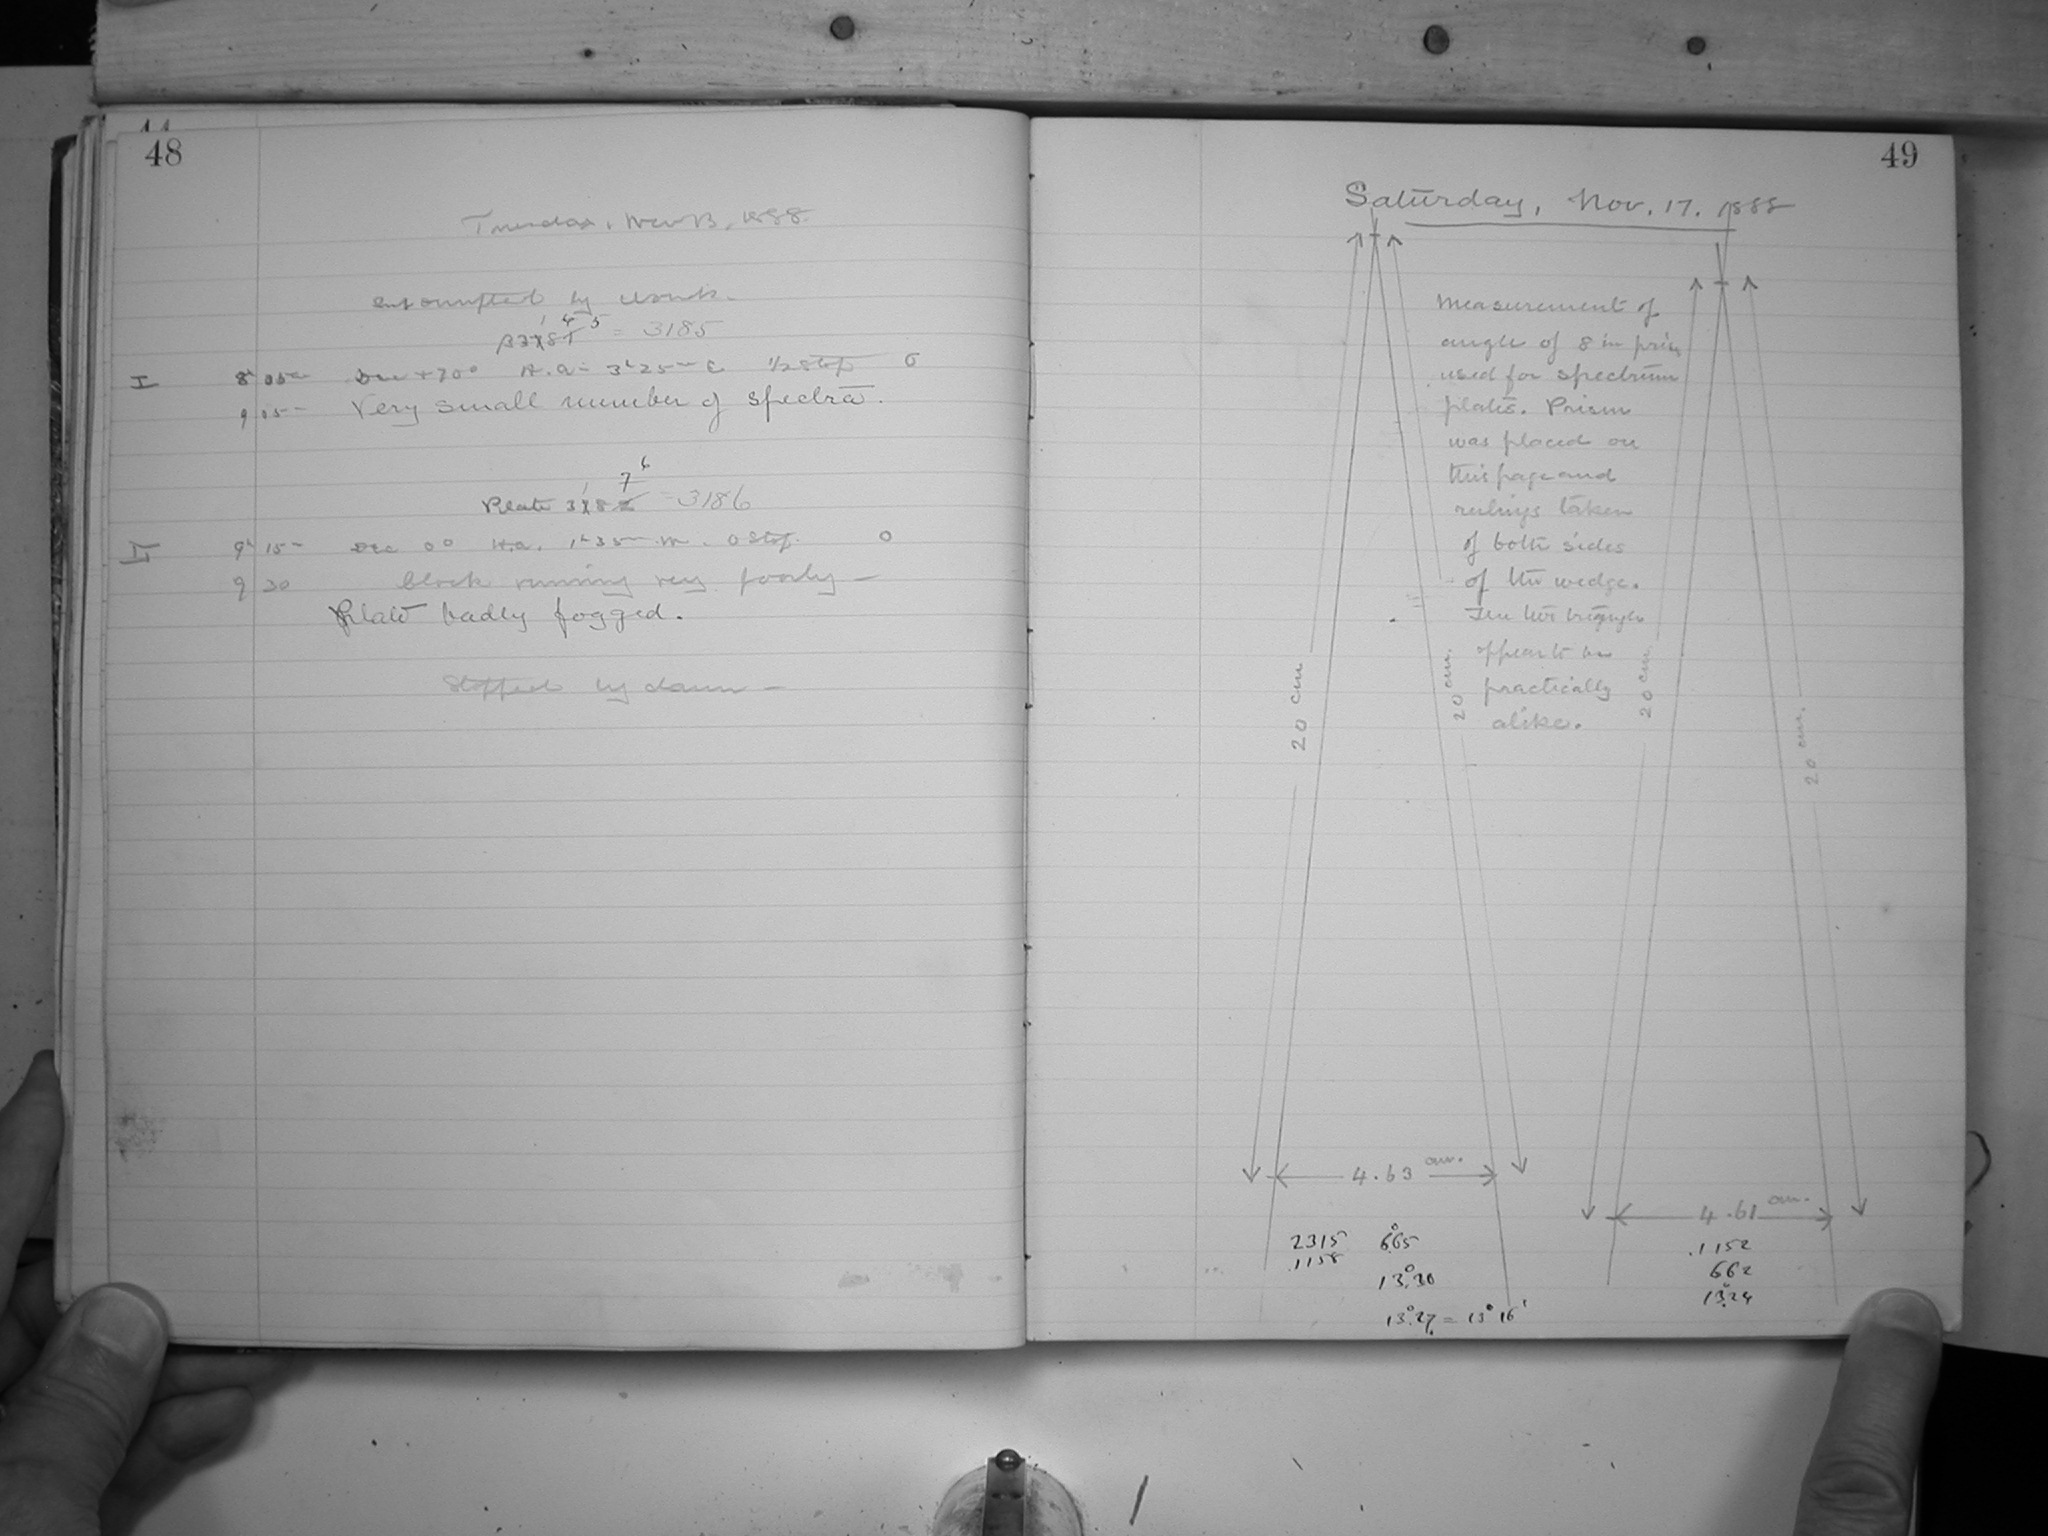 48
Tuesday, Nov 13, 1888.
Interrupted by clouds.
= 3185
I 8h 05m Dec +70° H.a = 3h25m E ½ Stop 0
9 05m Very small number of spectra.
Plate 3186
II 9h 15m Dec 0° H.a. 1h35m W. 0 Stop. 0
9 30 Clock running very poorly —
Plate badly fogged.
Stopped by dawn —
49
Saturday, Nov. 17. 1888
Measurement of
angle of 8 in prism
used for spectrum
plates. Prism
was placed on
this page and
rulings taken
of both sides
of the wedge.
The two triangles
appear to be
practically
alike.
20 cm
20 cm.
20 cm.
20 cm.
4.63 cm.
4.61 cm.
2315 6°.65
.1158
13°.30
13°.27 = 13° 16'
.1152
662
13°.24